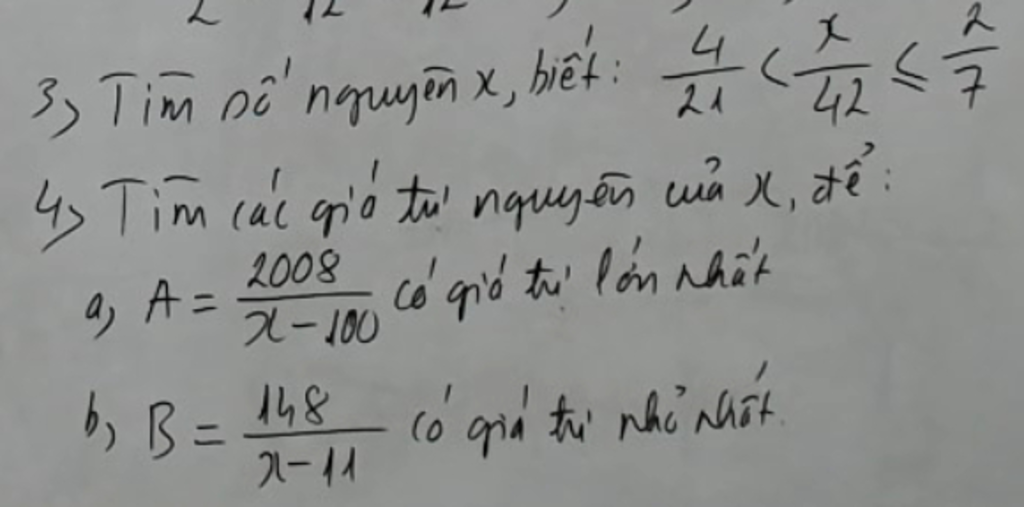 3, Tìm số nguyên x, biết: 4/21 < x/42 ≤ 2/7
4, Tìm các giá trị nguyên của x, để:
a, A = 2008/x-100 có giá trị lớn nhất
b, B = 148/x-11 có giá trị nhỏ nhất.